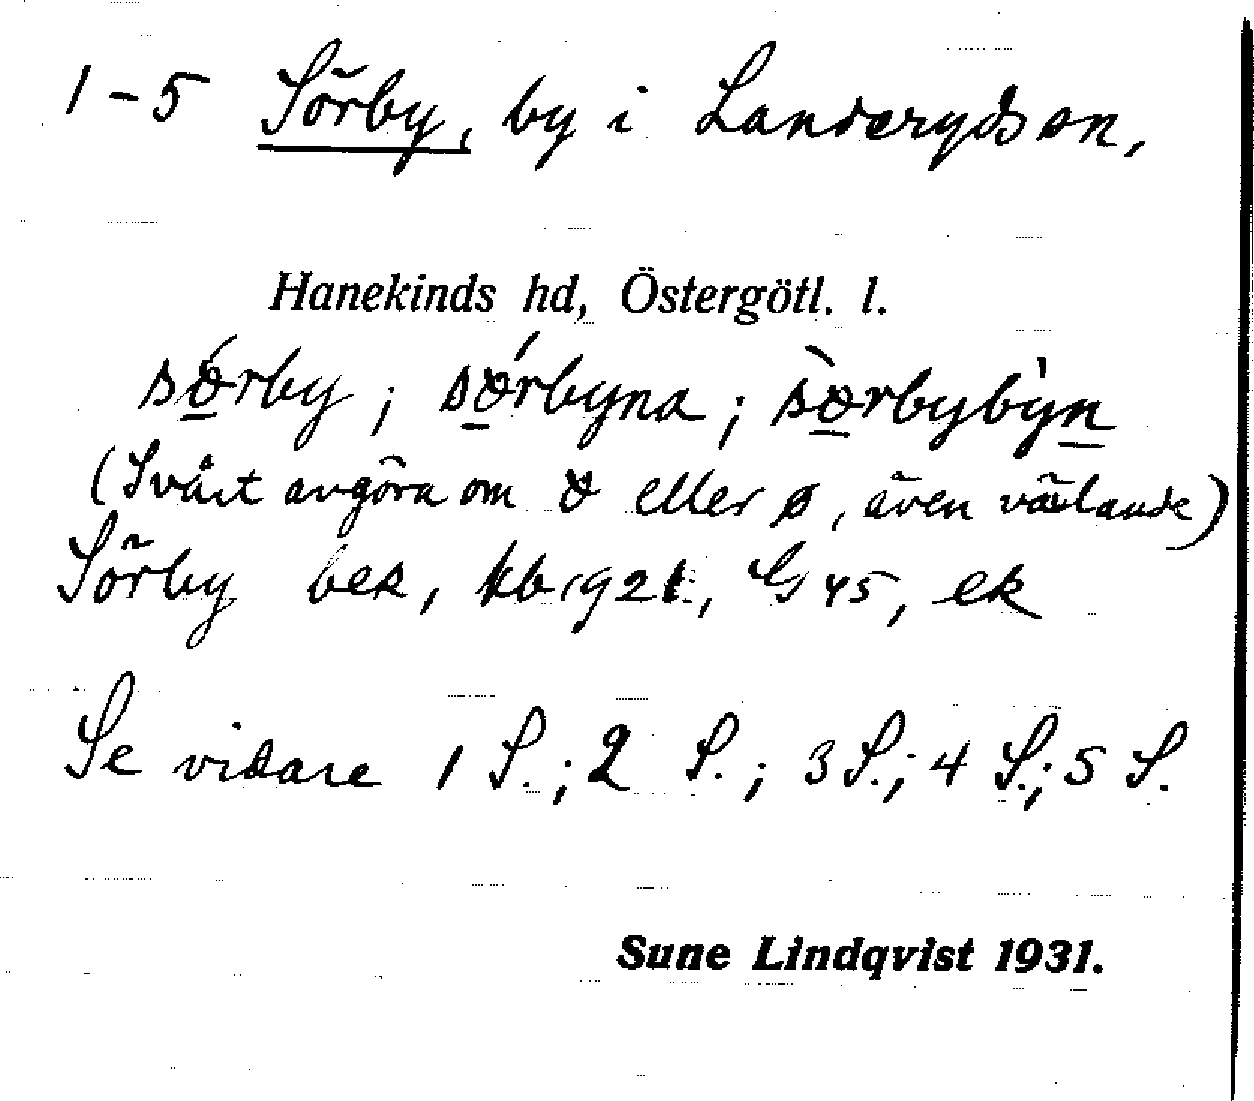 1-5 Sörby, by i Landeryds sn,
Hanekinds hd, Östergötl. l.
sɷ́rby; sɷ́rbyna; sɷ̀rbybỳn
(Svårt avgöra om ɷ eller ø, även växlande)
Sörby bek, kb 1921, G 45, ek
Se vidare 1 S.; 2 S.; 3 S.; 4 S.; 5 S.
Sune Lindqvist 1931.